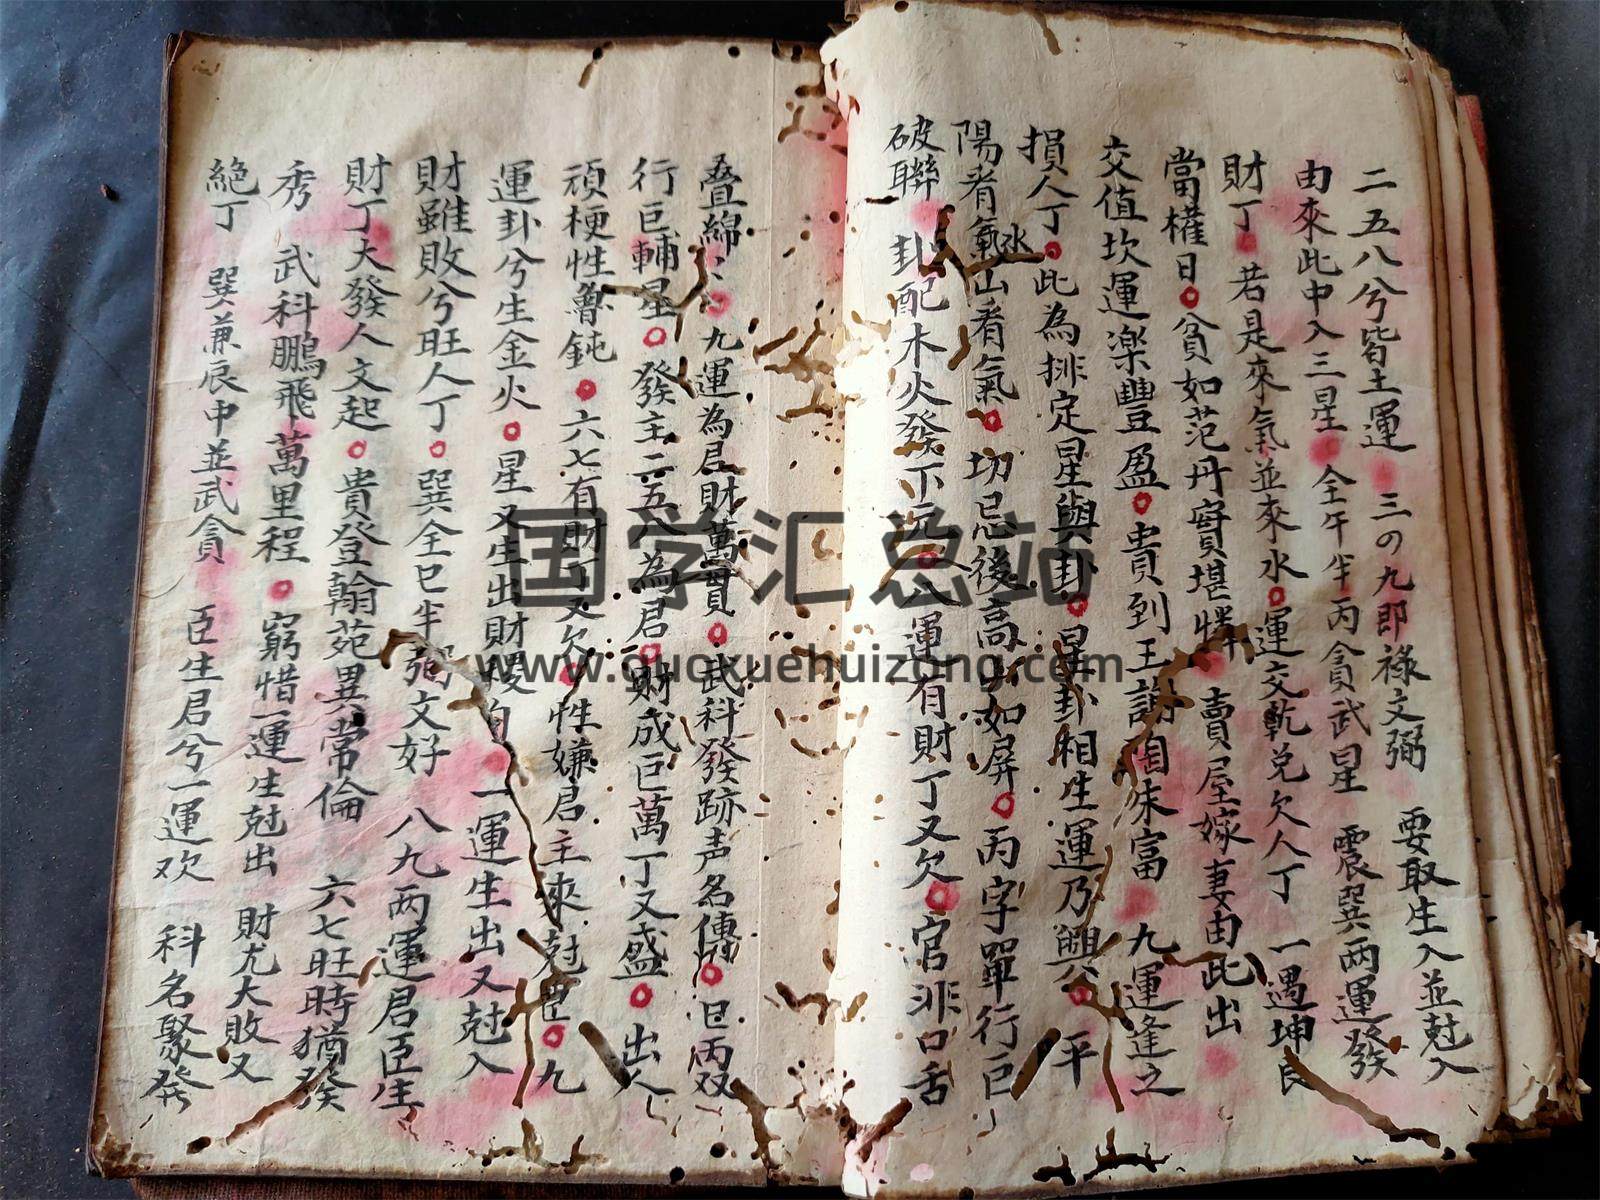 二五八兮皆土運 三の九即祿文弼 要取生入並尅入
由來此中入三星 全午半丙貪武星 震巽两運發
財丁 若是來氣並來水 運交乾兑欠人丁 一遇坤艮
當權日 貧如范丹實堪憐 賣屋嫁妻由此出
交值坎運楽豐盈 貴到王謝陶朱富 九運逢之
損人丁 此為排定星與卦 星卦相生運乃興 平
陽看水山看氣 切忌後高如屏 丙字單行巨
破聯 卦配木火發下元 八運有財丁又欠 官非口舌
叠綿〻 九運為启財萬貫 武科發跡声名傳 巳丙双
行巨輔星 發主二五八為君 財成巨萬丁又盛 出人
頑梗性魯鈍 六七有財丁又欠 性嫌启主來尅臣 九
運卦兮生金火 星又生出財 一運生出又尅入
財雖敗兮旺人丁 巽全巳半弼文好 八九两運君臣生
財丁大發人文起 貴登翰苑異常倫 六七旺時猶發
秀 武科鵬飛萬里程 窮惜一運生尅出 財尤大敗又
絕丁 巽兼辰中並武貪 臣生君兮一運欢 科名聚發
国学汇总站
www.guoxuehuizong.com